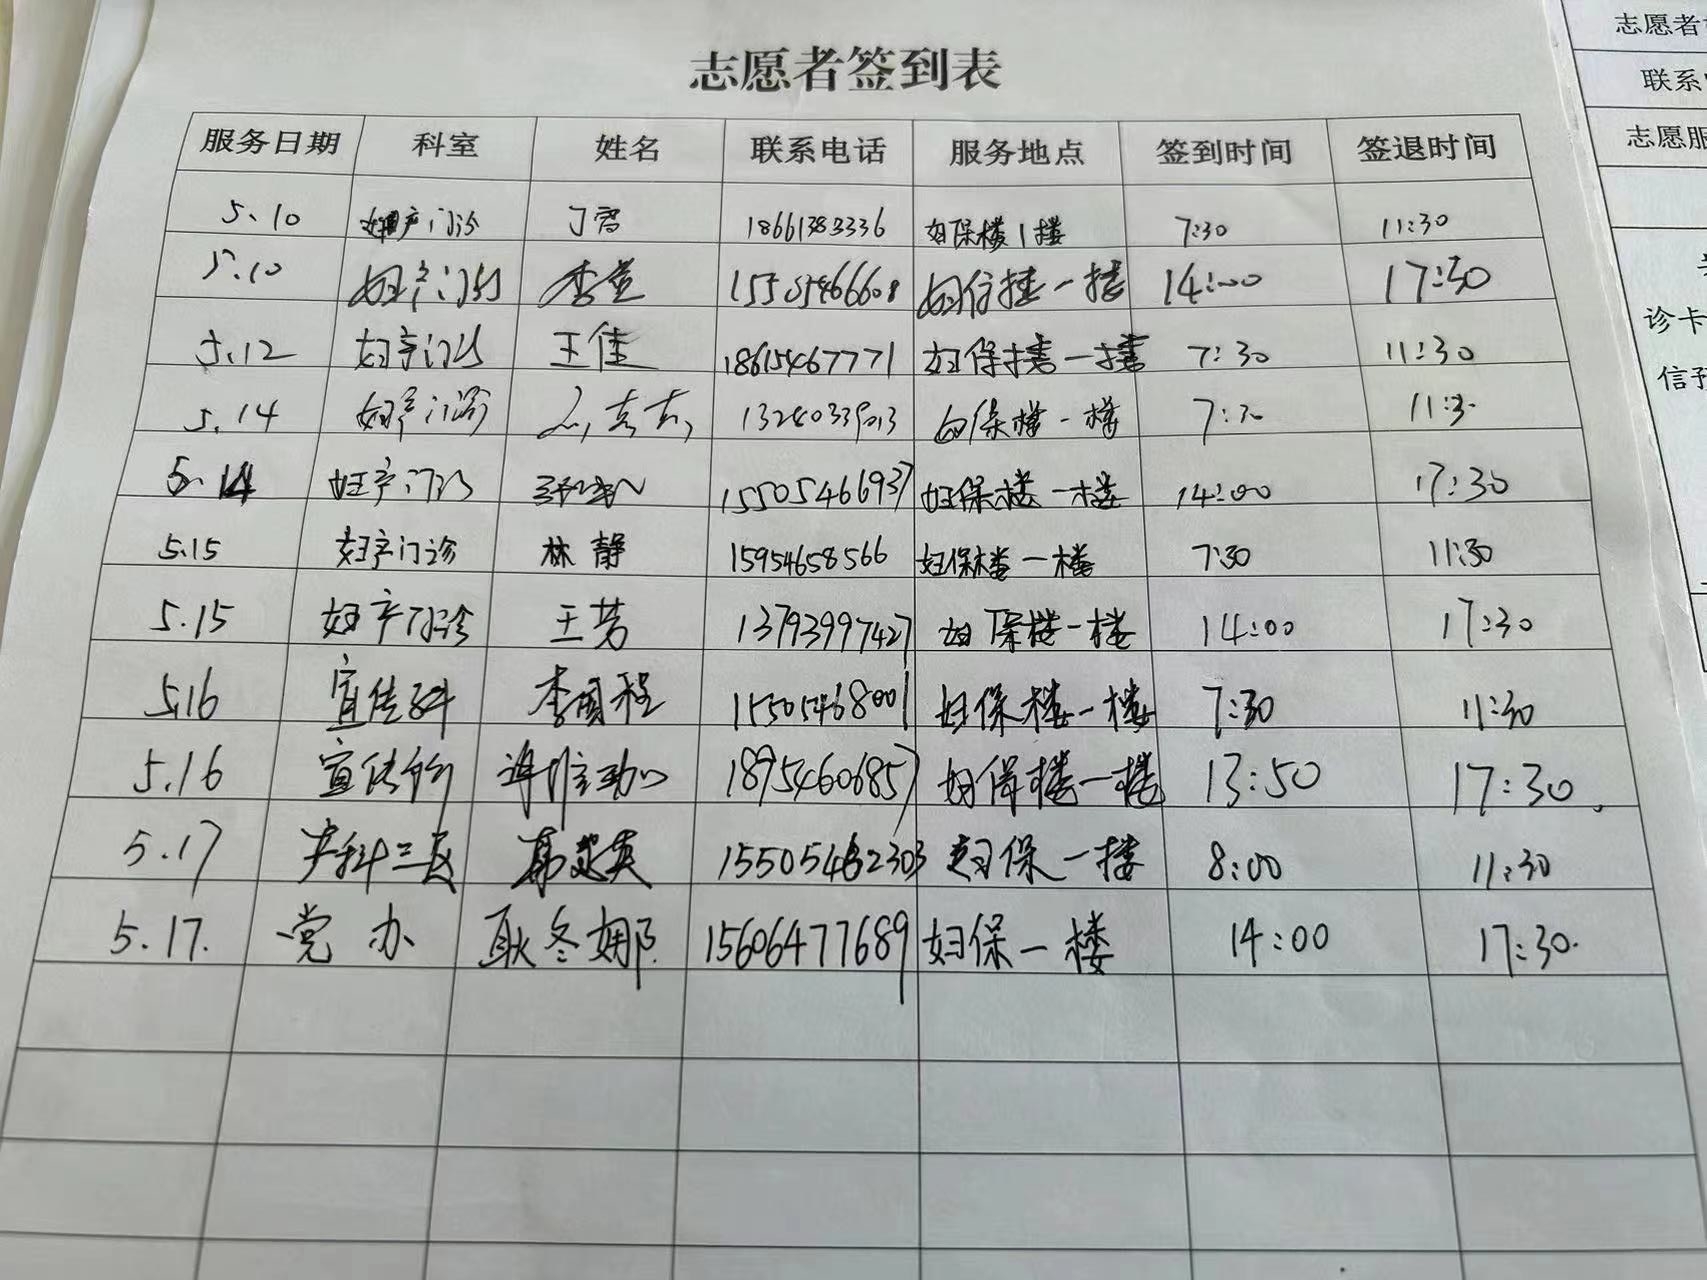 志愿者签到表
服务日期 科室 姓名 联系电话 服务地点 签到时间 签退时间
5.10 妇产门诊 丁 18661383336 妇保楼1楼 7:30 11:30
5.10 妇产门诊 李 15505466608 妇保楼一楼 14:00 17:30
5.12 妇产门诊 王佳 18615467771 妇保楼一楼 7:30 11:30
5.14 妇产门诊 妇保楼一楼 7:30 11:30
5.14 妇产门诊 15505466937 妇保楼一楼 14:00 17:30
5.15 妇产门诊 林静 15954658566 妇保楼一楼 7:30 11:30
5.15 妇产门诊 王芳 13793997427 妇保楼一楼 14:00 17:30
5.16 宣传科 李国程 15505468001 妇保楼一楼 7:30 11:30
5.16 宣传科 18954606857 妇保楼一楼 13:50 17:30.
5.17 产科三区 妇保一楼 8:00 11:30
5.17. 党办 耿冬娜 15606477689 妇保一楼 14:00 17:30.
志愿者
联系
志愿服
诊卡
信